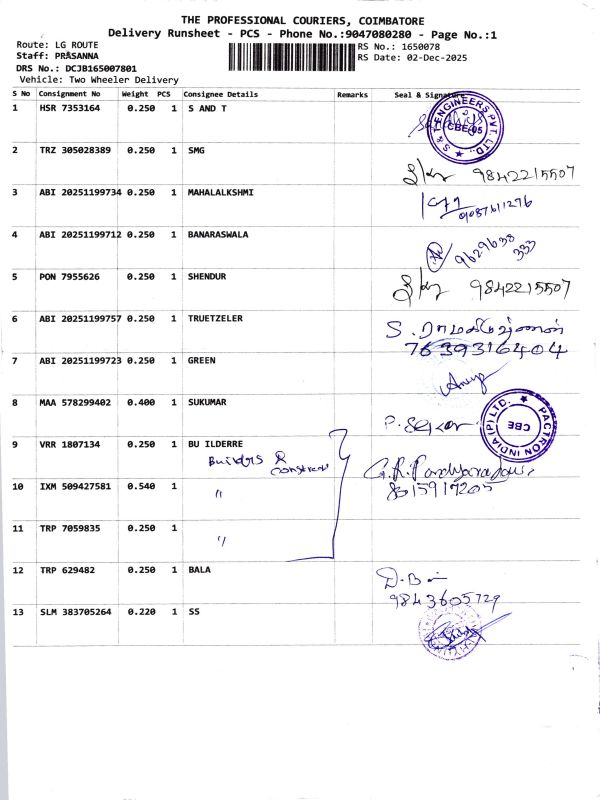 THE PROFESSIONAL COURIERS, COIMBATORE
Delivery Runsheet - PCS - Phone No.:9047080280 - Page No.:1
Route: LG ROUTE
RS No.: 1650078
Staff: PRASANNA
RS Date: 02-Dec-2025
DRS No.: DCJB165007801
Vehicle: Two Wheeler Delivery
S No Consignment No Weight PCS Consignee Details Remarks Seal & Signature
1 HSR 7353164 0.250 1 S AND T
S & T ENGINEERS PVT. LTD. CBE-05
2 TRZ 305028389 0.250 1 SMG
9842215507
3 ABI 20251199734 0.250 1 MAHALALKSHMI
9087611276
4 ABI 20251199712 0.250 1 BANARASWALA
9629638 333
5 PON 7955626 0.250 1 SHENDUR
9842215507
6 ABI 20251199757 0.250 1 TRUETZELER
S. ராமகிருஷ்ணன்
7639316404
7 ABI 20251199723 0.250 1 GREEN
8 MAA 578299402 0.400 1 SUKUMAR
P. Sekar
PACTRON INDIA (P) LTD. CBE
9 VRR 1807134 0.250 1 BU ILDERRE
Builders &
G.R.
10 IXM 509427581 0.540 1 "
8015917205
11 TRP 7059835 0.250 1
"
12 TRP 629482 0.250 1 BALA
9843605729
13 SLM 383705264 0.220 1 SS